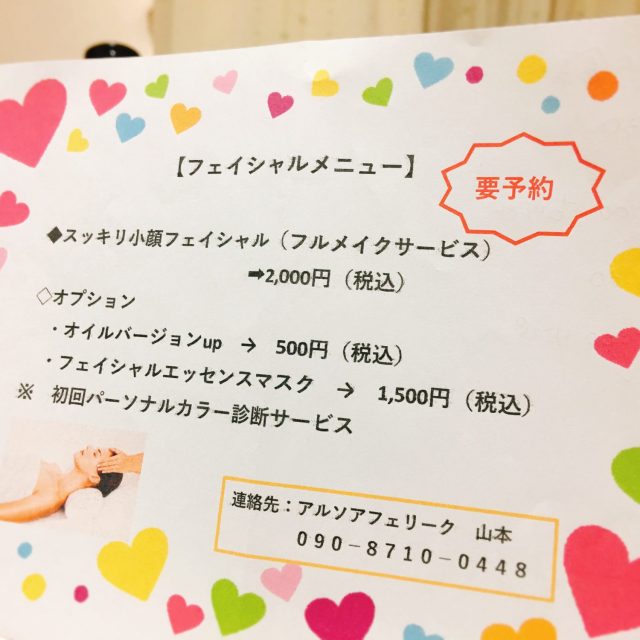 【フェイシャルメニュー】
要予約
◆スッキリ小顔フェイシャル（フルメイクサービス）
➡2,000円（税込）
◇オプション
・オイルバージョンup → 500円（税込）
・フェイシャルエッセンスマスク → 1,500円（税込）
※ 初回パーソナルカラー診断サービス
連絡先：アルソアフェリーク 山本
090－8710－0448